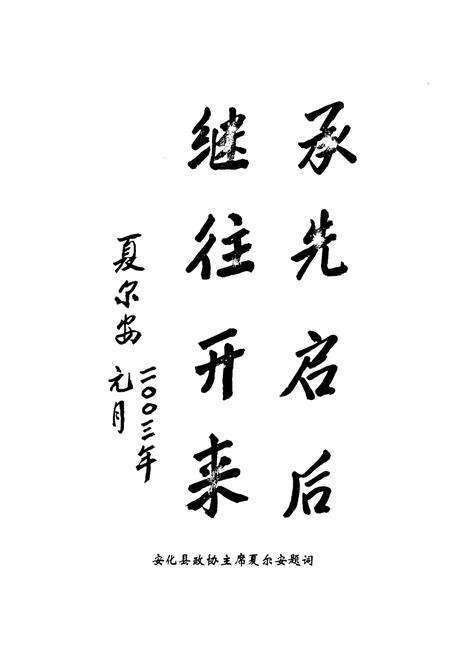 承先启后
继往开来
夏尔安
二〇〇三年
元月
安化县政协主席夏尔安题词